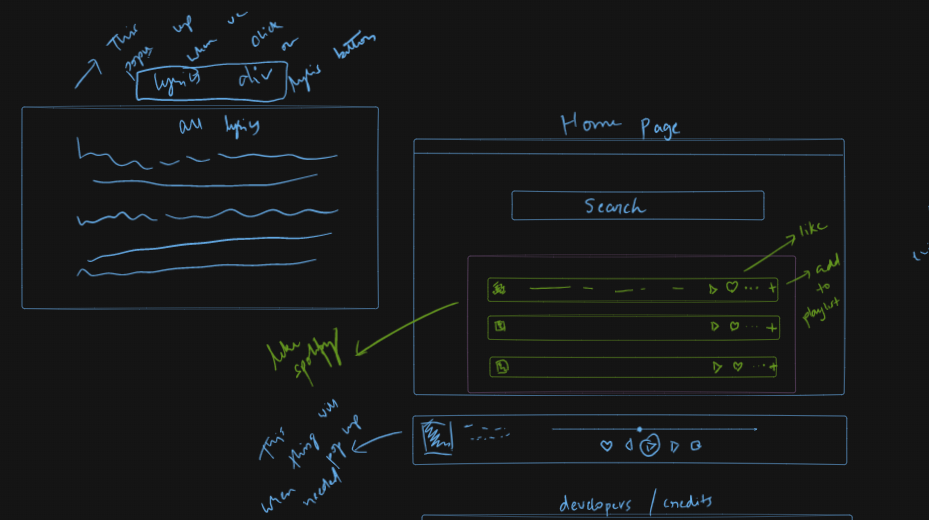 This pops up when we click on lyrics button
lyrics div
all lyrics
Home Page
Search
like
add to playlist
like spotify
This thing will pop up when needed
developers / credits